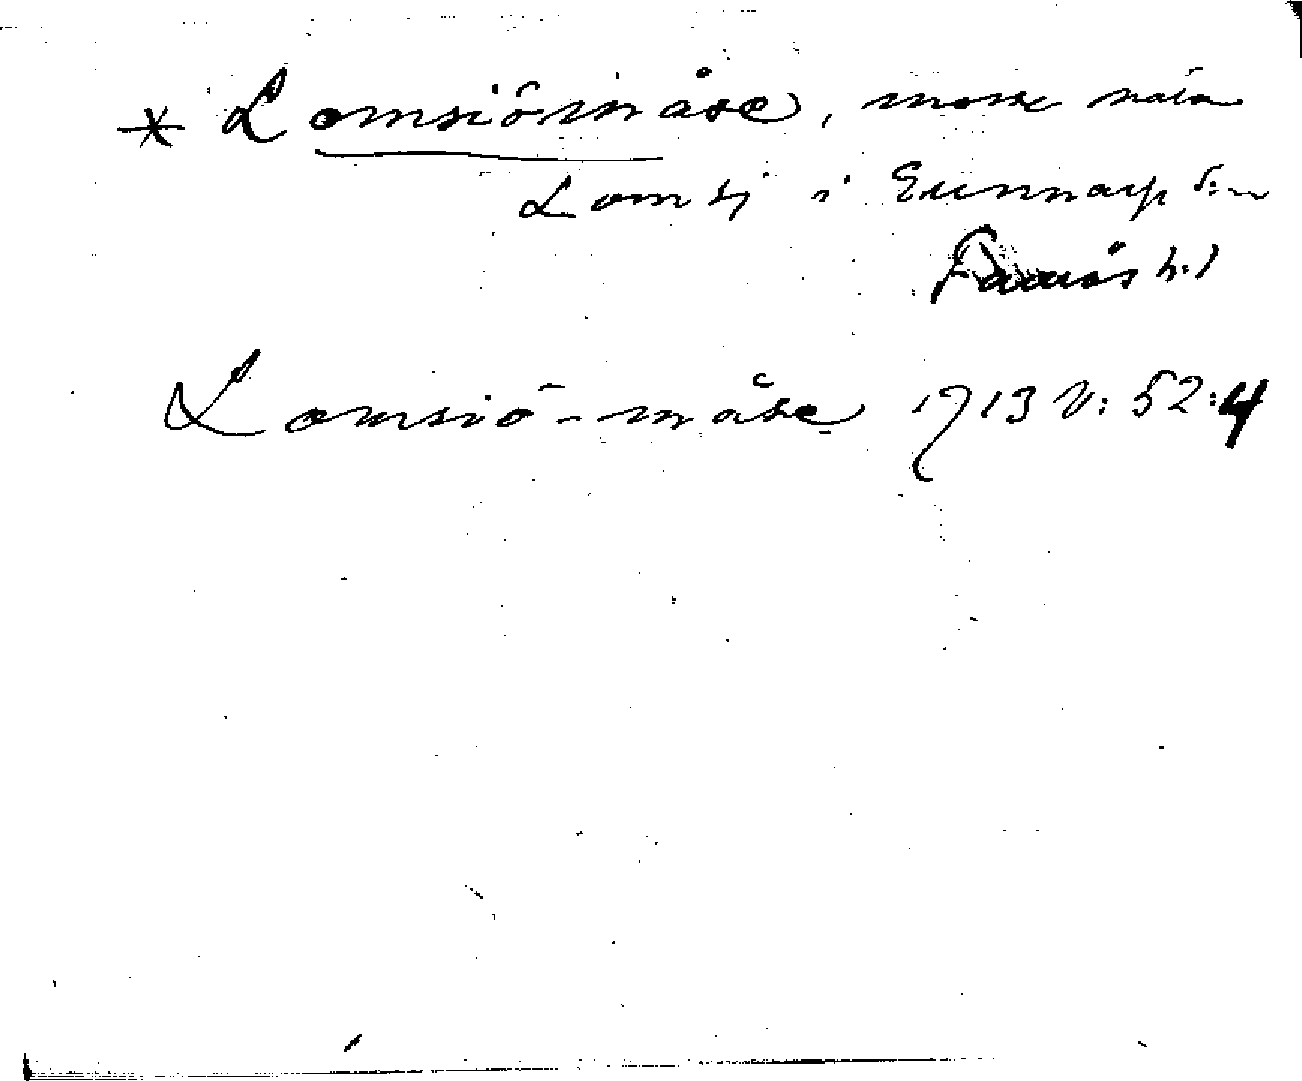 * Lomsiömåse, mosse nära
Lomsj i Gunnarp s:n
Faurås h:d
Lomsiö-måse 1713 V: 52:4